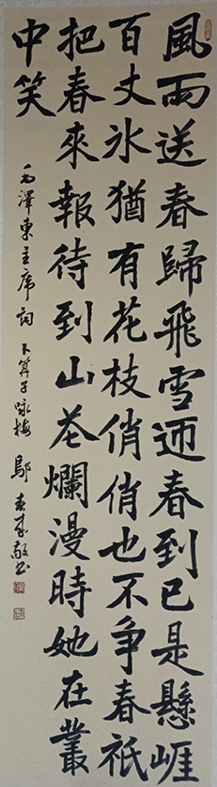 風雨送春歸飛雪迎春到已是懸崖
百丈冰猶有花枝俏俏也不争春祇
把春來報待到山花爛漫時她在叢
中笑
毛澤東主席詞卜算子咏梅